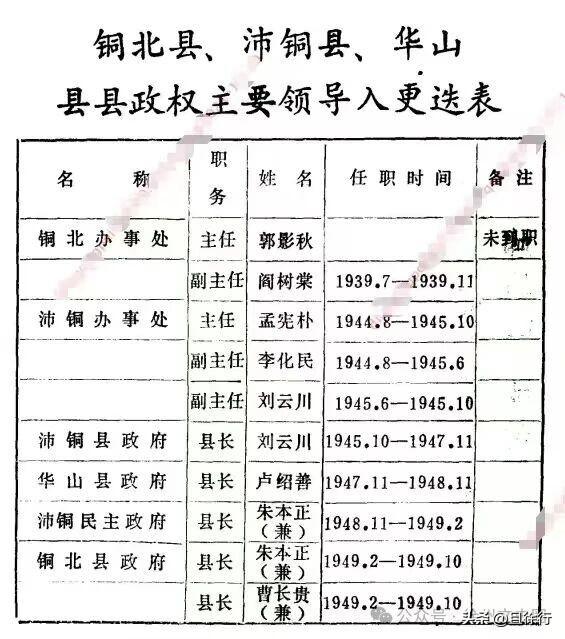 铜北县、沛铜县、华山
县县政权主要领导人更迭表
名 称 职务 姓 名 任职时间 备注
铜北办事处 主任 郭影秋 未到职
副主任 阎树棠 1939.7—1939.11
沛铜办事处 主任 孟宪朴 1944.8—1945.10
副主任 李化民 1944.8—1945.6
副主任 刘云川 1945.6—1945.10
沛铜县政府 县长 刘云川 1945.10—1947.11
华山县政府 县长 卢绍善 1947.11—1948.11
沛铜民主政府 县长 朱本正（兼） 1948.11—1949.2
铜北县政府 县长 朱本正（兼） 1949.2—1949.10
县长 曹长贵（兼） 1949.2—1949.10
头条@且徐行